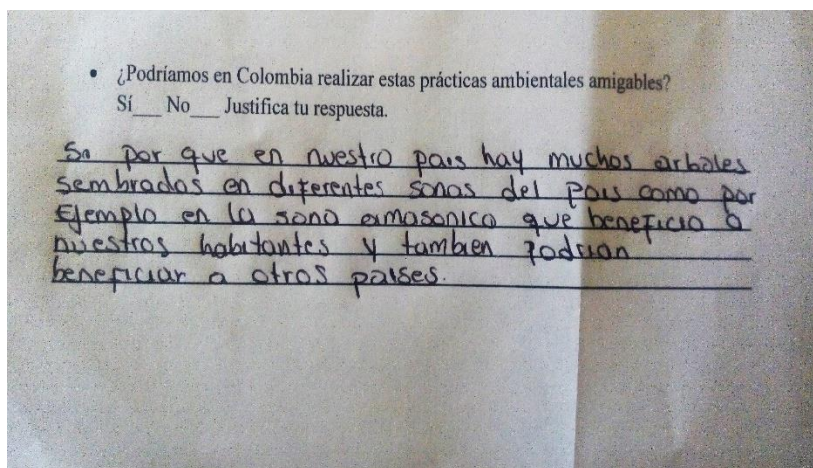 • ¿Podríamos en Colombia realizar estas prácticas ambientales amigables?
Sí___ No___ Justifica tu respuesta.
Si por que en nuestro pais hay muchos arboles
sembrados en diferentes sonas del pais como por
Ejemplo en la sona amasonica que beneficia a
nuestros habitantes y tambien podrian
beneficiar a otros paises.